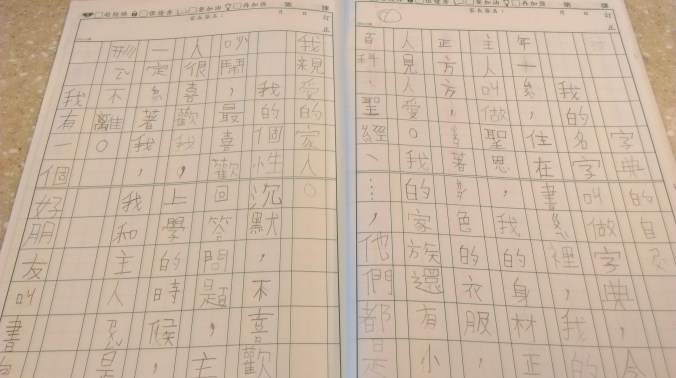 字典的自
我的名字叫做字典，今
年一ㄙ，住在書裡，我的
主人叫做聖思，我的身材正
正方方，著色的衣服，
人見人愛。我的家族還有小
百科、聖經、……，他們都是
我親愛的家人。
我的個性沉默，不喜歡
吵鬧，最喜歡回答問題，主
人很喜歡我，上學的時候，
一定著我，我和主人是
形不離。
我有一個好朋友叫書